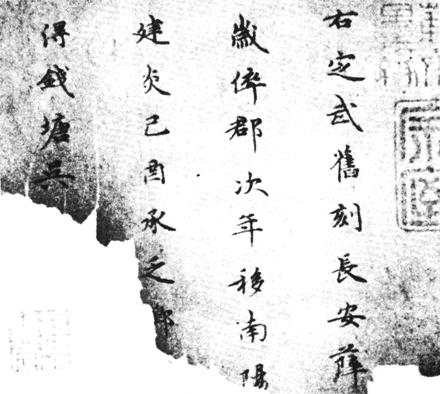 右定武舊刻長安薛
嵗倅郡次年移南陽
建炎己酉承乏
得錢塘吳